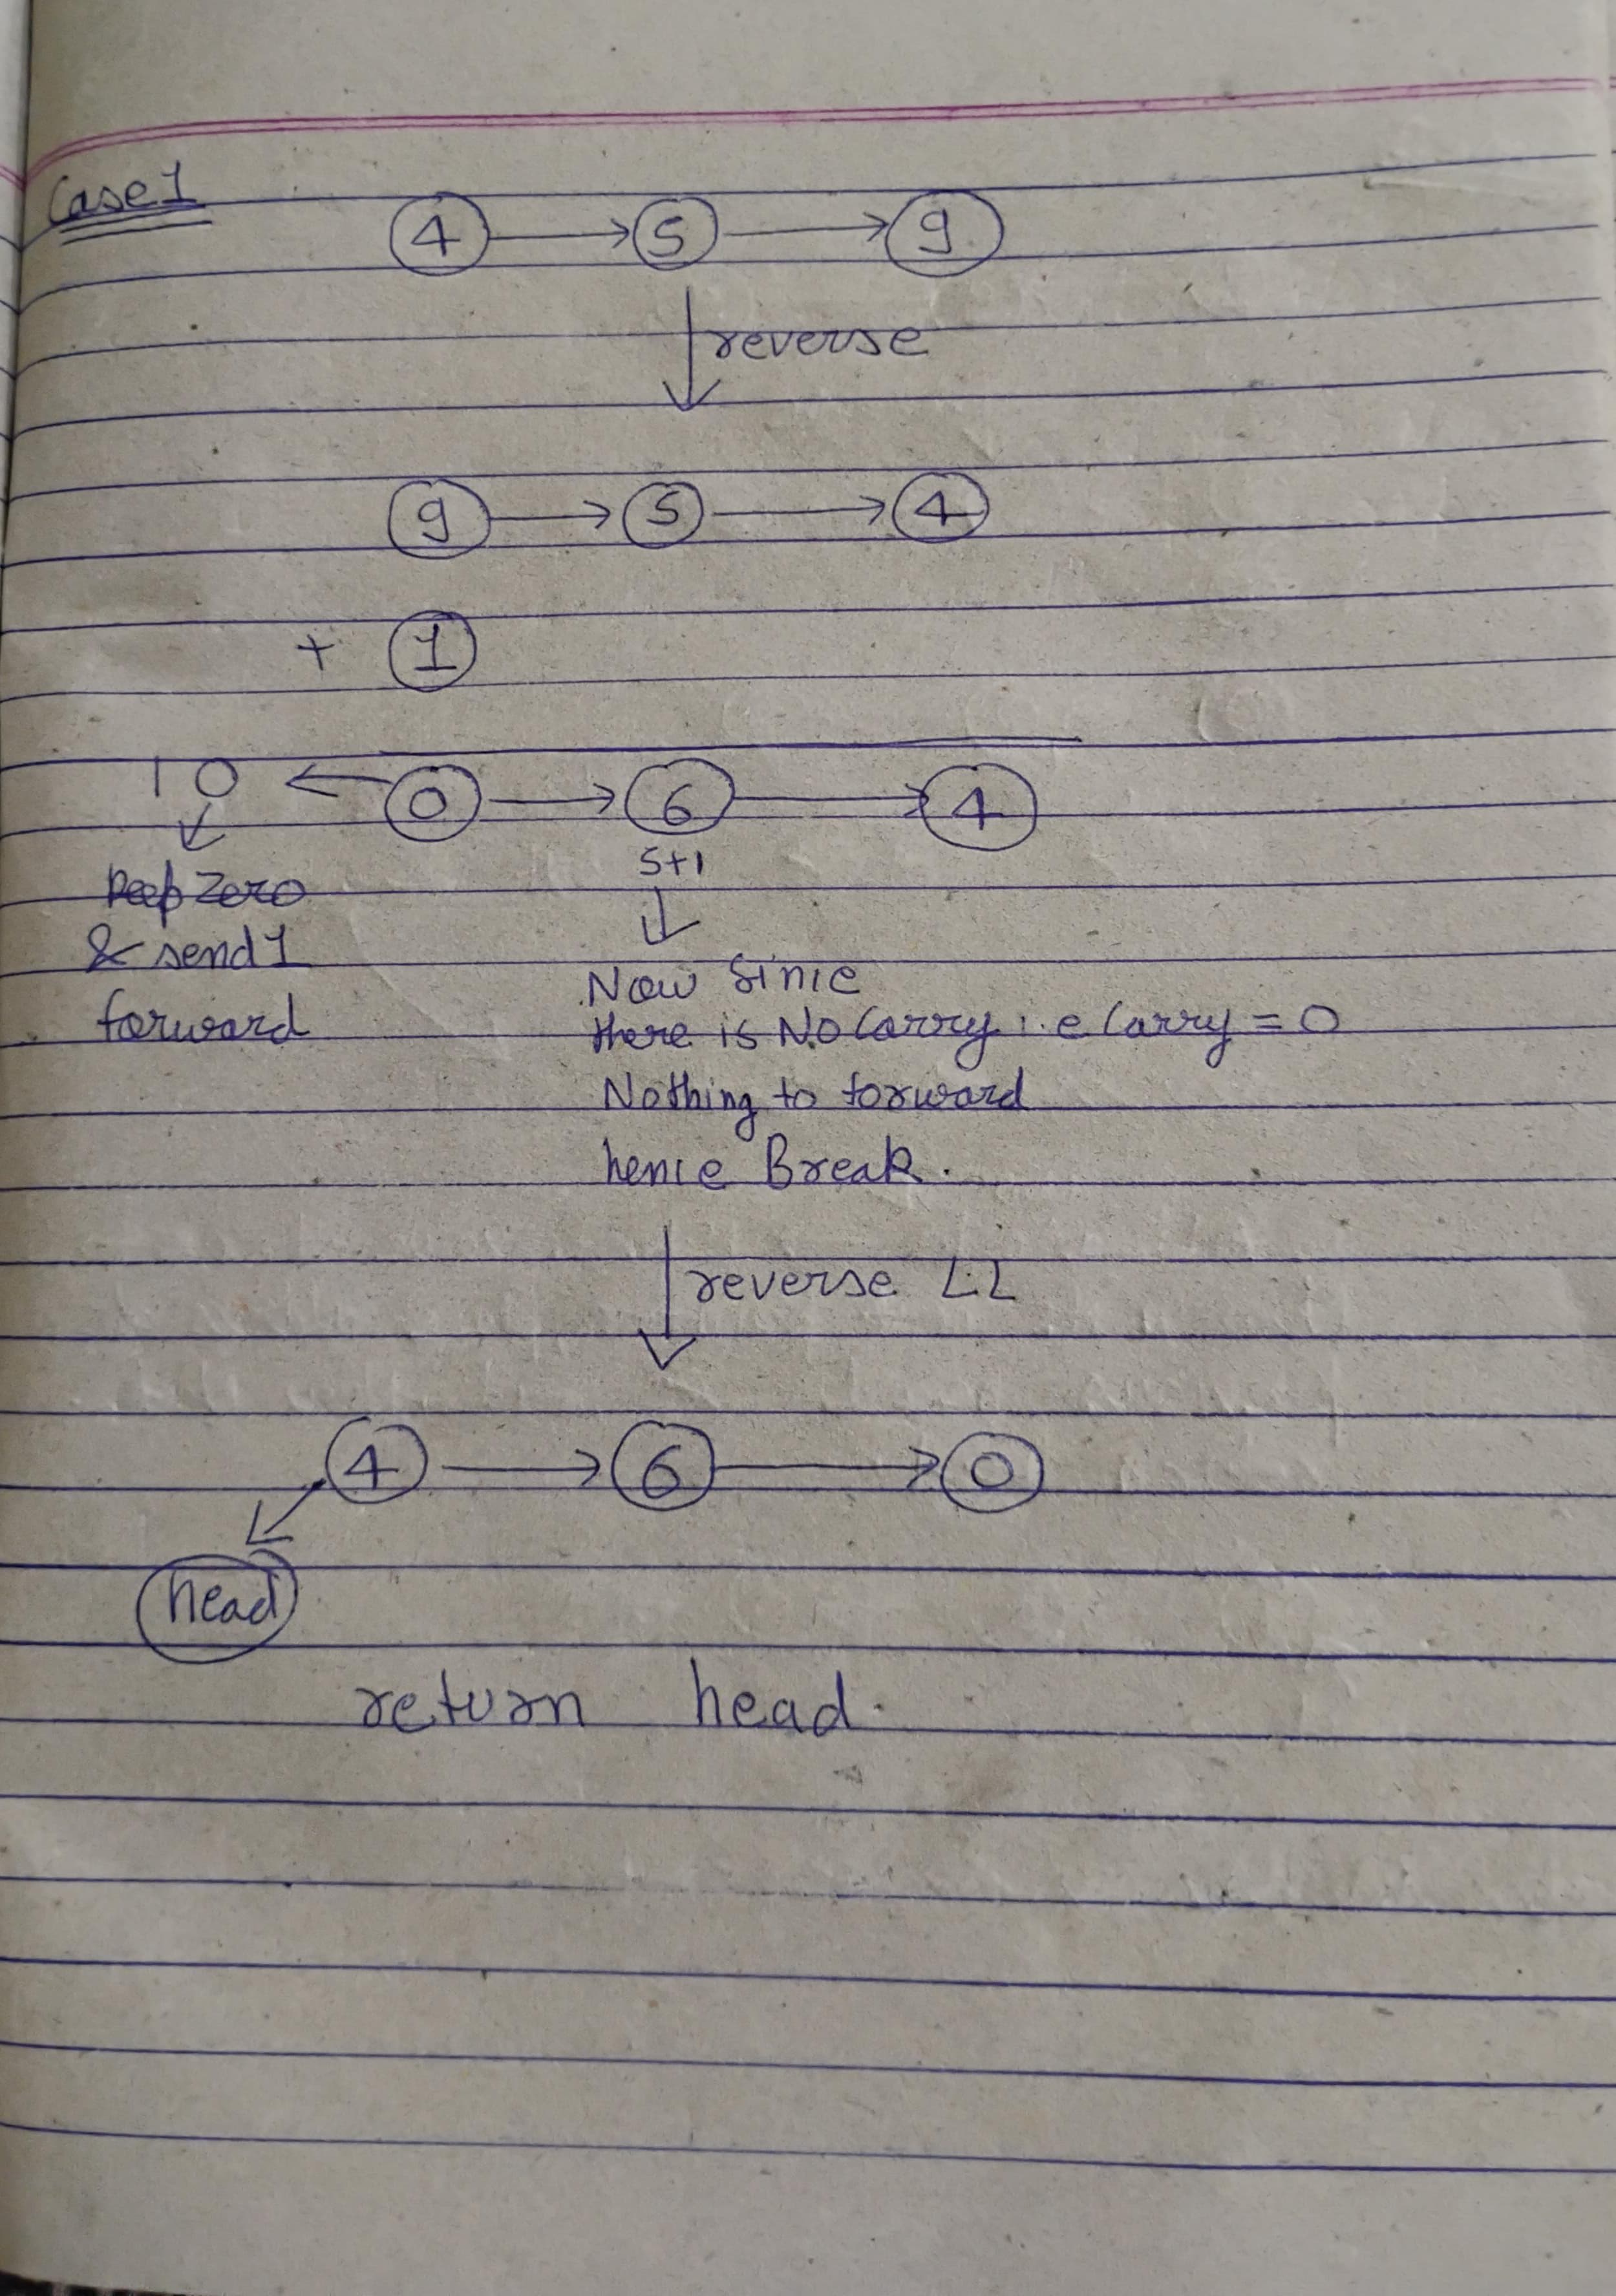 Case 1
4 → 5 → 9
↓ reverse
9 → 5 → 4
+ 1
10 ← 0 → 6 → 4
5+1
Keep Zero
& send 1
forward
Now Since
there is No Carry i.e Carry = 0
Nothing to forward
hence Break.
↓ reverse LL
4 → 6 → 0
head
return head.